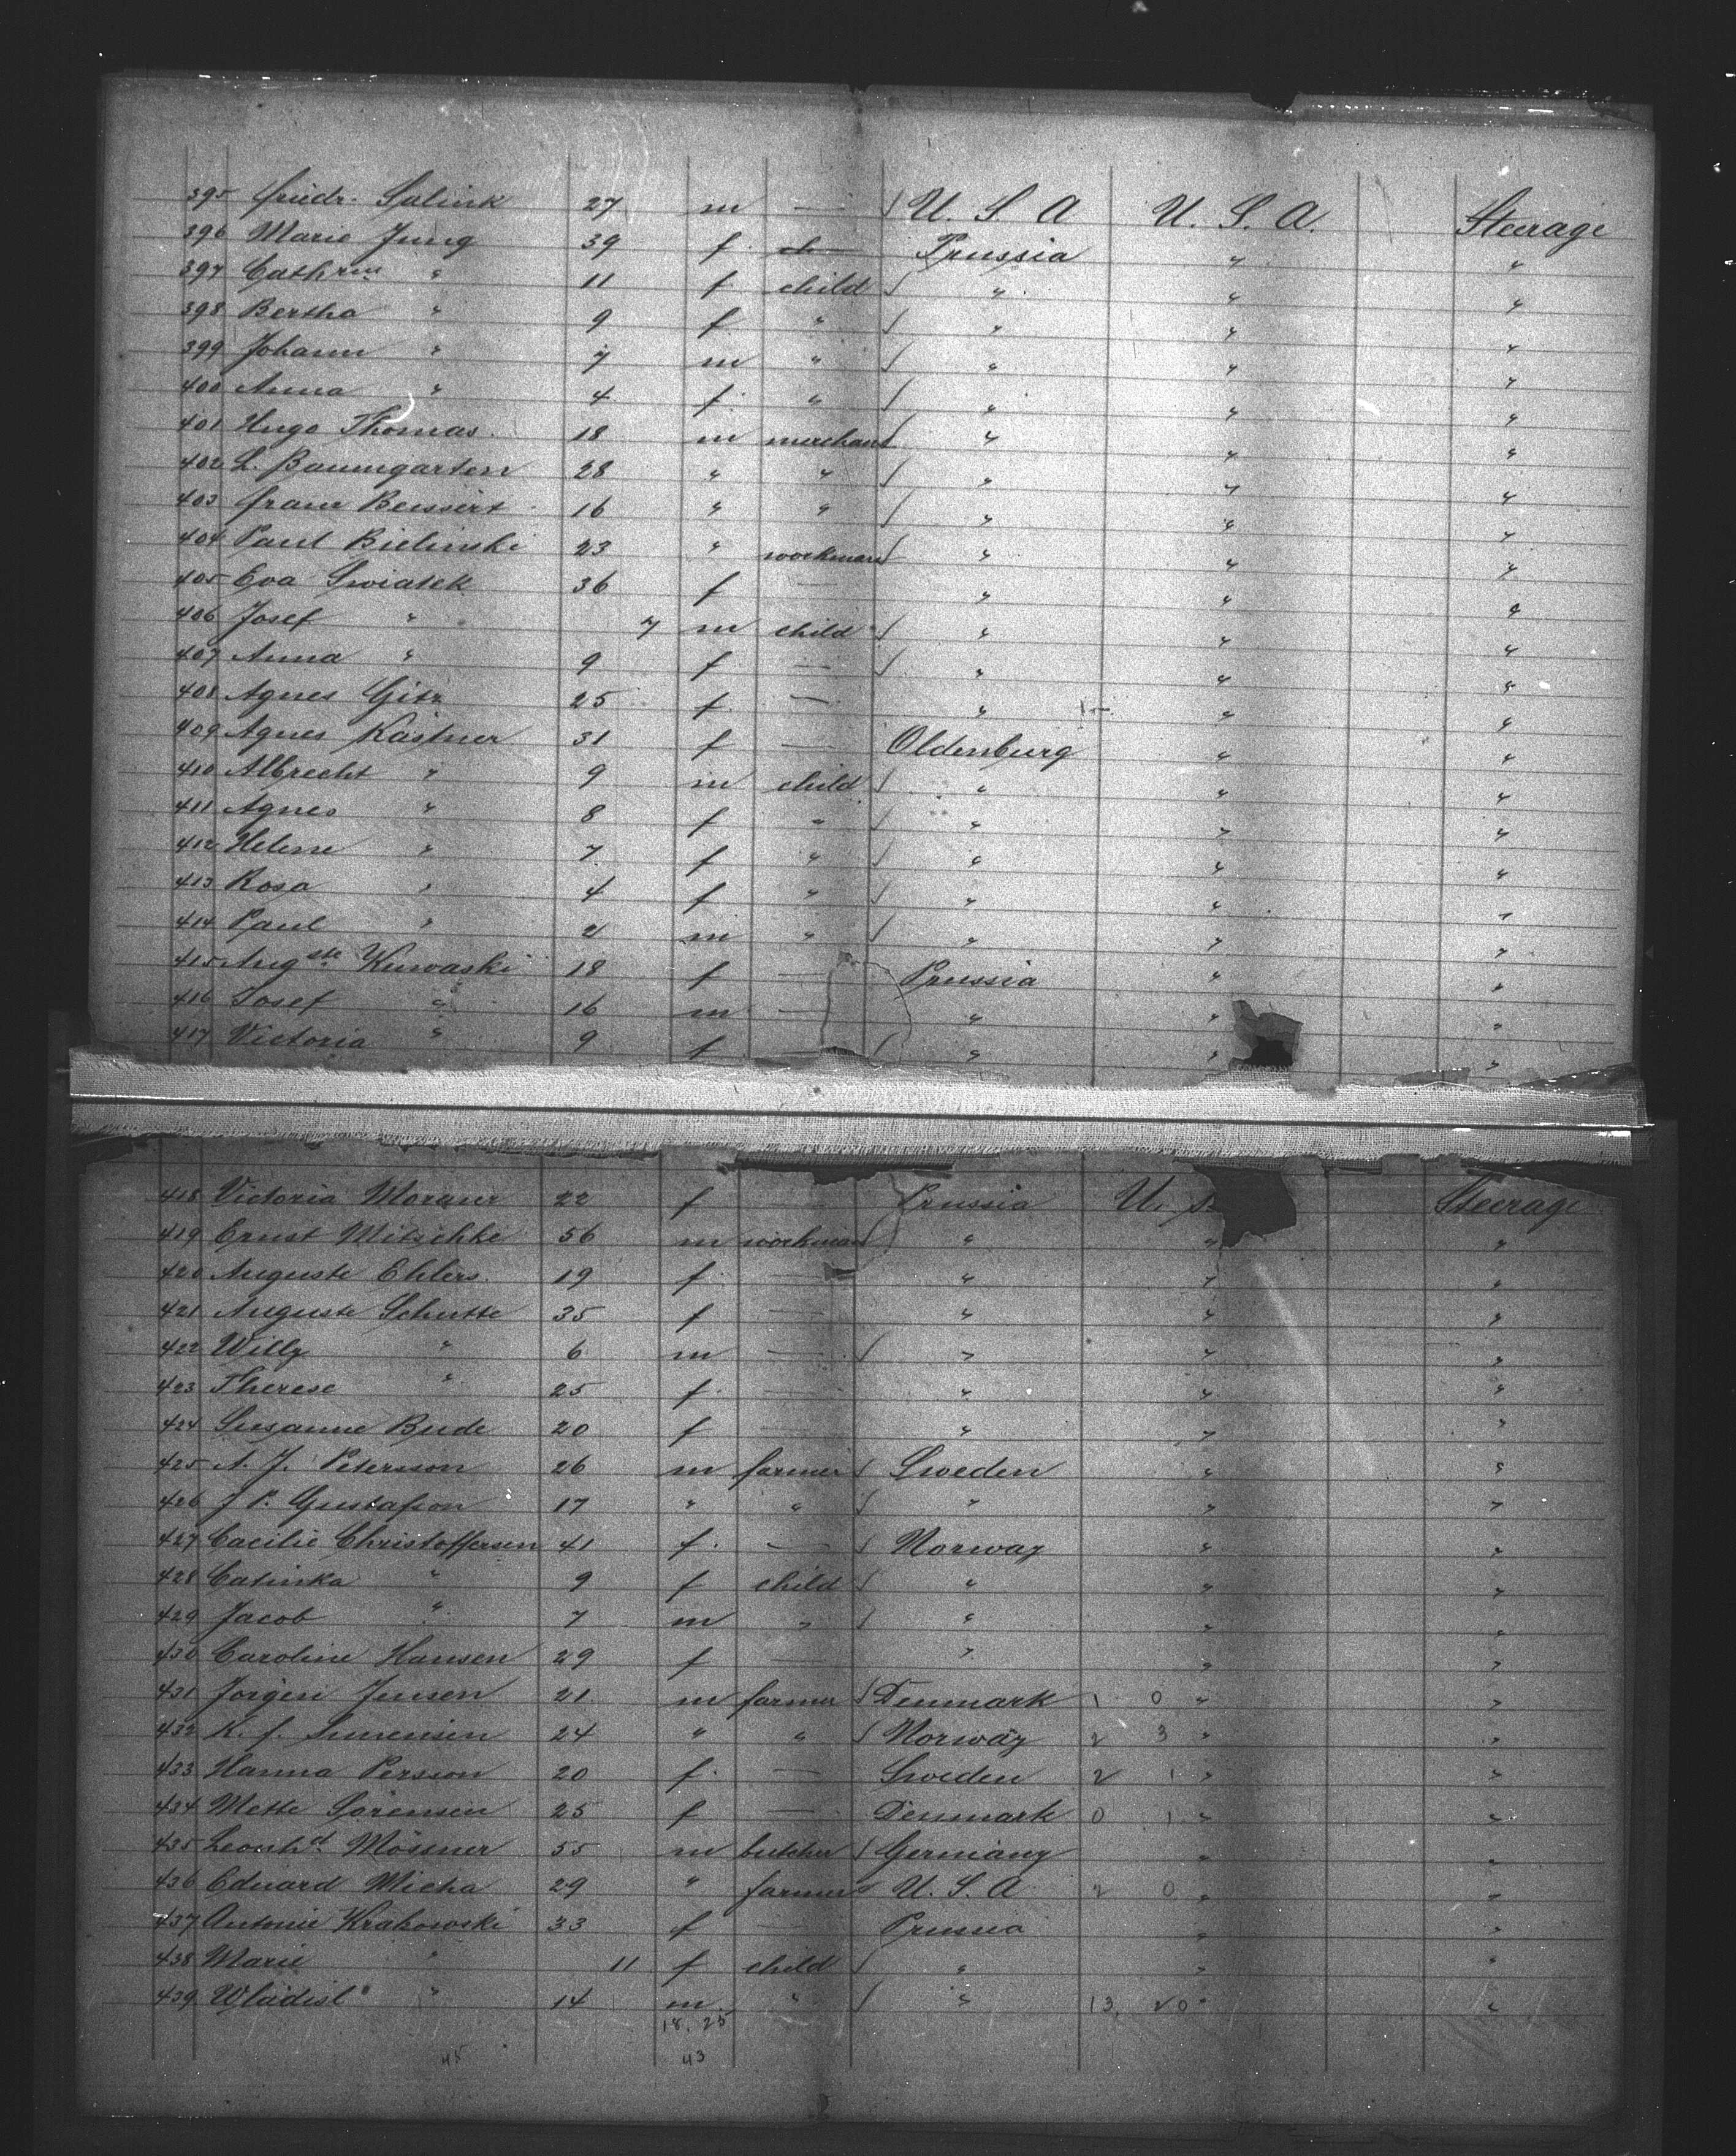 395 Friedr. Salink 27 m — U. S. A U. S. A. Steerage
396 Marie Jung 39 f — Prussia " "
397 Cathrine " 11 f child " " "
398 Bertha " 9 f " " " "
399 Johann " 7 m " " " "
400 Anna " 4 f " " " "
401 Hugo Thomas 18 m merchant " " "
402 L. Baumgarten 28 " " " " "
403 Franz 16 " " " " "
404 Paul Bielinski 23 " workman " " "
405 Eva Swiatek 36 f — " " "
406 Josef " 7 m child " " "
407 Anna " 9 f — " " "
408 Agnes Gitz 25 f — " " "
409 Agnes Kästner 31 f — Oldenburg " "
410 Albrecht " 9 m child " " "
411 Agnes " 8 f " " " "
412 Helene " 7 f " " " "
413 Rosa " 4 f " " " "
414 Paul " 2 m " " " "
415 Augste Kuwaski 18 f — Prussia " "
416 Josef " 16 m — " " "
417 Victoria " 9 f " " "
418 Victoria 22 f Prussia U. S. Steerage
419 Ernst Mitschke 56 m workman " " "
420 Auguste Ehlers 19 f — " " "
421 Auguste Schutte 35 f — " " "
422 Willy " 6 m — " " "
423 Therese " 25 f — " " "
424 Susanne Bude 20 f — " " "
425 A. J. Petersson 26 m farmer Sweden " "
426 J. P. Gustafson 17 " " " " "
427 Cacilie Christoffersen 41 f — Norway " "
428 Catinka " 9 f child " " "
429 Jacob " 7 m " " " "
430 Caroline Hansen 29 f — " " "
431 Jorgen Jensen 21 m farmer Denmark 1 0 " "
432 K. J. 24 " " Norway 2 3 " "
433 Hanna Persson 20 f — Sweden 2 1 " "
434 Mette Sörensen 25 f — Denmark 0 1 " "
435 Leonhd Mössner 55 m butcher Germany " "
436 Eduard Micha 29 " farmer U. S. A 2 0 " "
437 Antonie Krakowski 33 f — Prussia " "
438 Marie " 11 f child " " "
439 Wladisl " 14 m " " 13. 20 " "
18. 25
45 43